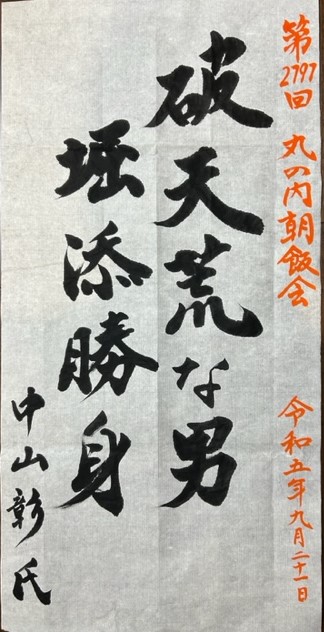 第2797回 丸の内朝飯会 令和五年九月二十一日
破天荒な男
堀添勝身
中山彰氏